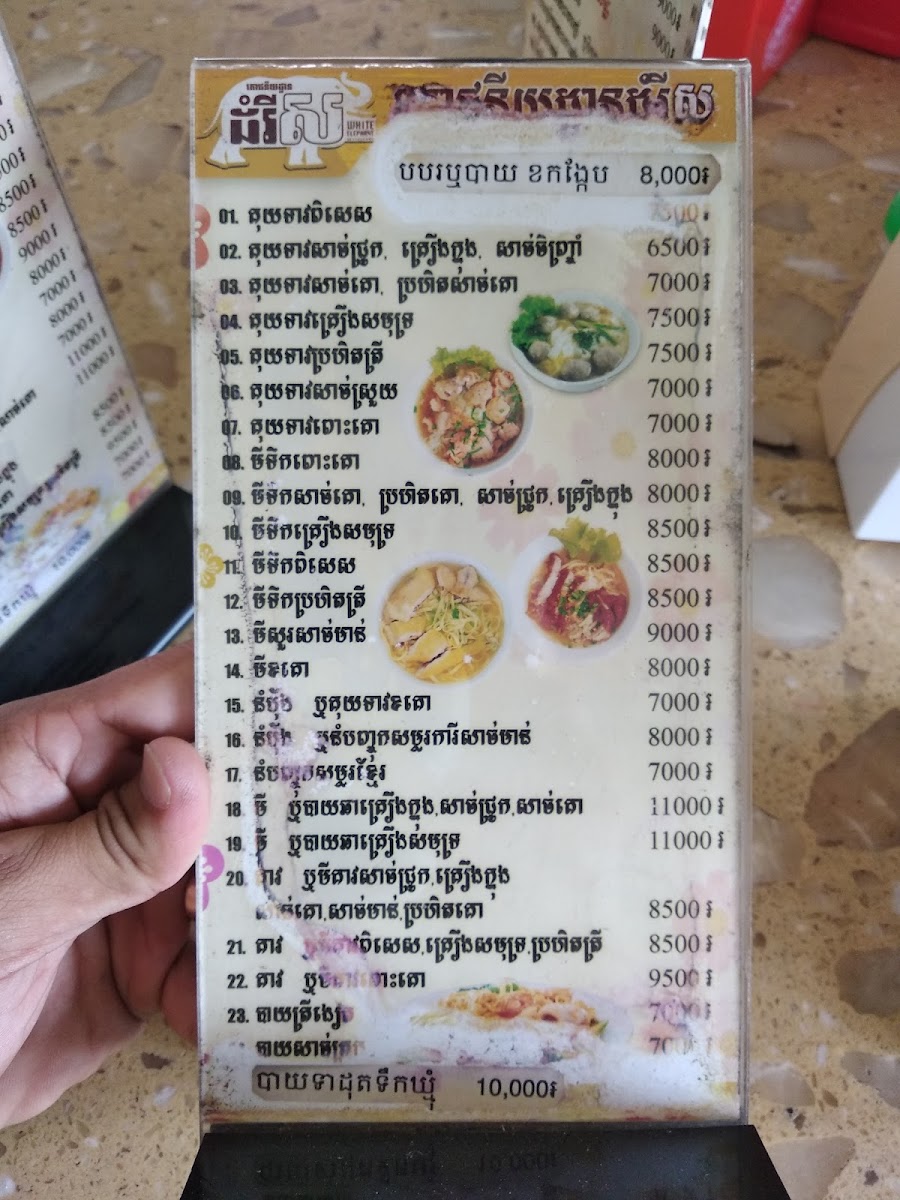 ភោជនីយដ្ឋាន
ដំរីស
WHITE
ELEPHANT
ភោជនីយដ្ឋានដំរីស
បបរឬបាយ ខកង្កែប 8,000៛
01. គុយទាវពិសេស 7500៛
02. គុយទាវសាច់ជ្រូក, គ្រឿងក្នុង, សាច់ចិញ្ច្រាំ 6500៛
03. គុយទាវសាច់គោ, ប្រហិតសាច់គោ 7000៛
04. គុយទាវគ្រឿងសមុទ្រ 7500៛
05. គុយទាវប្រហិតត្រី 7500៛
06. គុយទាវសាច់ស្រួយ 7000៛
07. គុយទាវពោះគោ 7000៛
08. មីទឹកពោះគោ 8000៛
09. មីទឹកសាច់គោ, ប្រហិតគោ, សាច់ជ្រូក,គ្រឿងក្នុង 8000៛
10. មីទឹកគ្រឿងសមុទ្រ 8500៛
11. មីទឹកពិសេស 8500៛
12. មីទឹកប្រហិតត្រី 8500៛
13. មីសួរសាច់មាន់ 9000៛
14. មីខគោ 8000៛
15. នំប៉័ង ឬគុយទាវខគោ 7000៛
16. នំប៉័ង ឬនំបញ្ចុកសម្លរការីសាច់មាន់ 8000៛
17. នំបញ្ចុកសម្លរខ្មែរ 7000៛
18. មី ឬបាយឆាគ្រឿងក្នុង,សាច់ជ្រូក,សាច់គោ 11000៛
19. មី ឬបាយឆាគ្រឿងសមុទ្រ 11000៛
20. គាវ ឬមីគាវសាច់ជ្រូក,គ្រឿងក្នុង
សាច់គោ,សាច់មាន់,ប្រហិតគោ 8500៛
21. គាវ ឬមីគាវពិសេស,គ្រឿងសមុទ្រ,ប្រហិតត្រី 8500៛
22. គាវ ឬមីគាវពោះគោ 9500៛
23. បាយត្រីងៀត 7000៛
បាយសាច់ជ្រូក 7000៛
បាយទាដុតទឹកឃ្មុំ 10,000៛